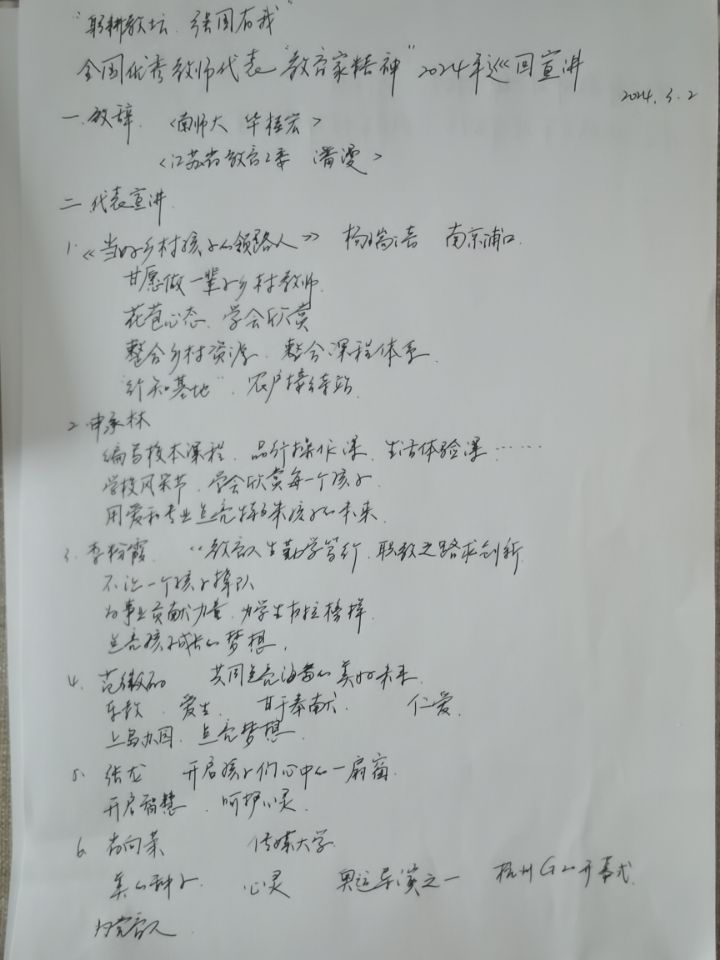 "躬耕教坛、强国有我"
全国优秀教师代表"教育家精神"2024年巡回宣讲
2024.5.2
一、致辞 <南师大 华桂宏>
<江苏省教育工委 潘漫>
二、代表宣讲
1.《当好乡村孩子的领路人》 杨瑞清 南京浦口
甘愿做一辈子乡村教师
花苞心态、学会欣赏
整合乡村资源、整合课程体系
"行知基地"、农户接待站
2、申承林
编写校本课程、品行操作课、生活体验课……
学校风采节、学会欣赏每一个孩子
用爱和专业点亮特殊孩子的未来
3、李粉霞 "教育人生勤学笃行、职教之路求创新
不让一个孩子掉队
为事业贡献力量、为学生树立榜样
点亮孩子成长的梦想、
4、范徽丽 共同点亮海岛的美好未来
乐教、爱生、甘于奉献、仁爱、
上岛办园、点亮梦想、
5、张龙 开启孩子们心中的一扇窗
开启智慧、呵护心灵
6、尚向荣 传媒大学
美的种子、心灵 奥运导演之一 杭州G20开幕式
为党育人